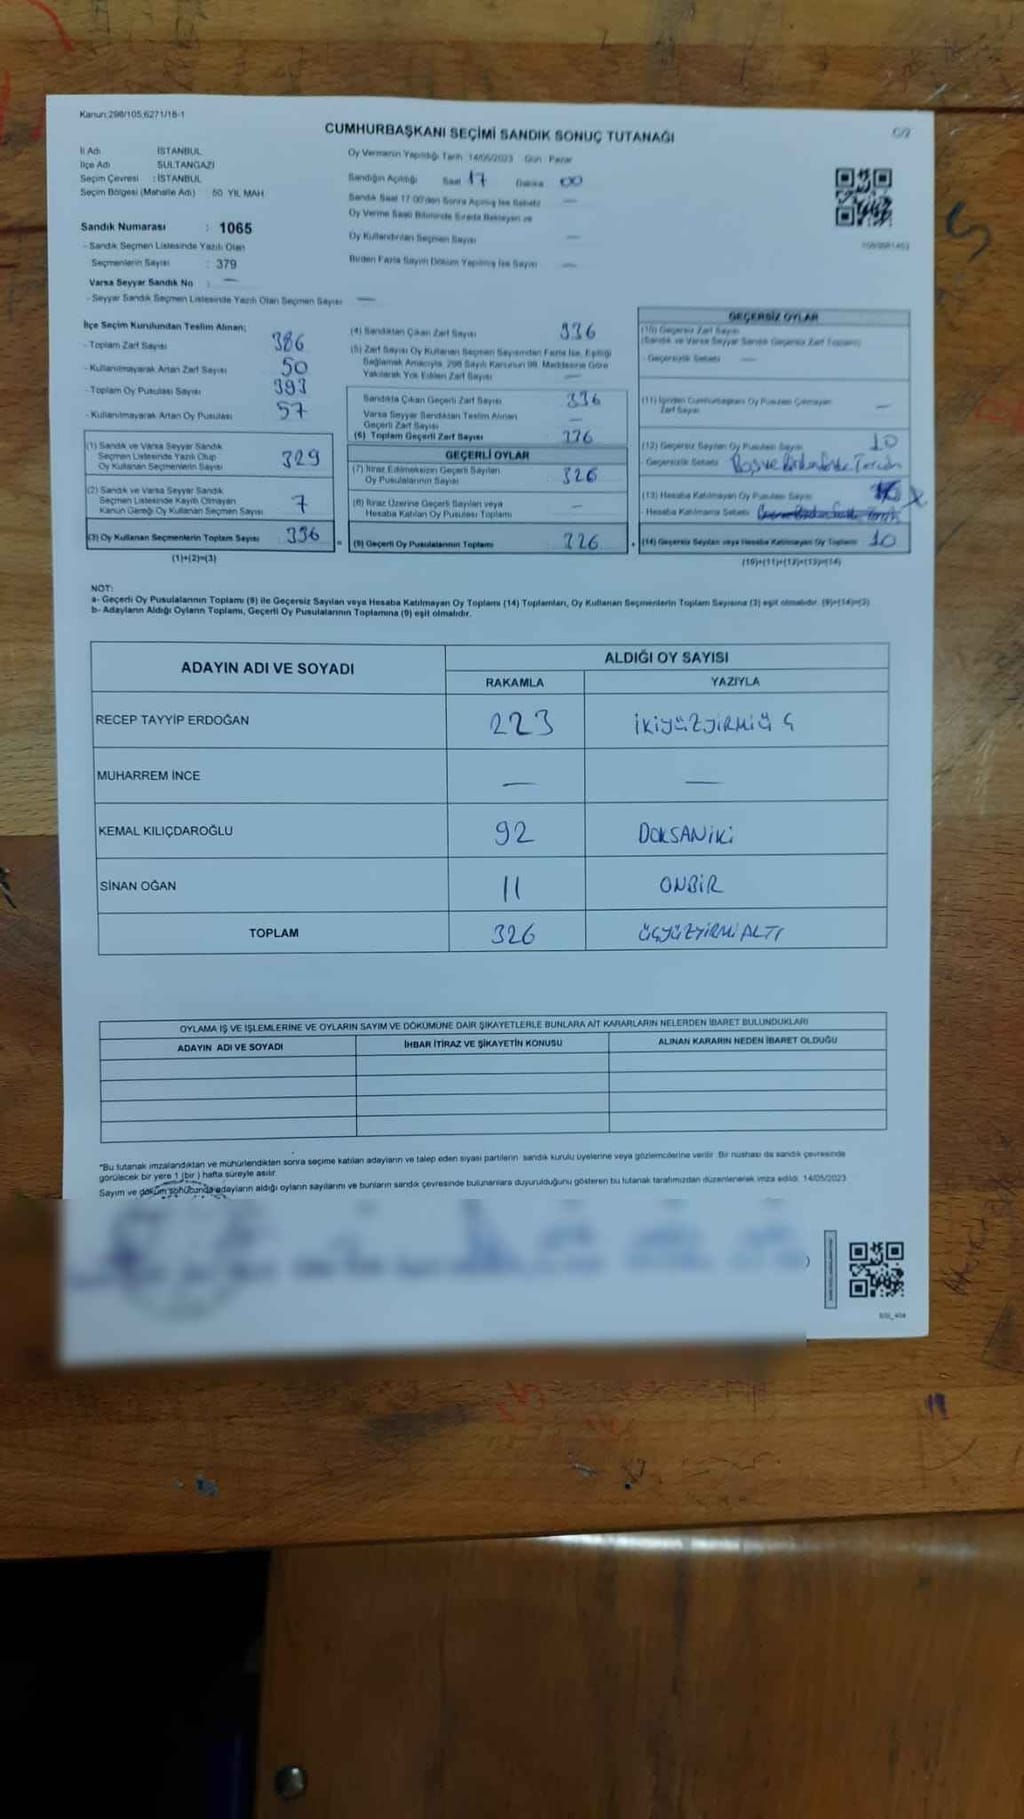 Kanun:298/105,6271/18-1
CUMHURBAŞKANI SEÇİMİ SANDIK SONUÇ TUTANAĞI
C/2
İl Adı : İSTANBUL
İlçe Adı : SULTANGAZİ
Seçim Çevresi : İSTANBUL
Seçim Bölgesi (Mahalle Adı) : 50. YIL MAH.
Oy Vermenin Yapıldığı Tarih: 14/05/2023 Gün: Pazar
Sandığın Açıldığı Saat 17 Dakika 00
Sandık Saat 17.00'den Sonra Açılmış İse Sebebi —
Oy Verme Saati Bitiminde Sırada Bekleyen ve
Oy Kullandırılan Seçmen Sayısı —
Birden Fazla Sayım Döküm Yapılmış İse Sayısı —
Sandık Numarası : 1065
- Sandık Seçmen Listesinde Yazılı Olan
Seçmenlerin Sayısı : 379
Varsa Seyyar Sandık No : —
- Seyyar Sandık Seçmen Listesinde Yazılı Olan Seçmen Sayısı —
İlçe Seçim Kurulundan Teslim Alınan;
- Toplam Zarf Sayısı 386
- Kullanılmayarak Artan Zarf Sayısı 50
- Toplam Oy Pusulası Sayısı 393
- Kullanılmayarak Artan Oy Pusulası 57
(1) Sandık ve Varsa Seyyar Sandık
Seçmen Listesinde Yazılı Olup
Oy Kullanan Seçmenlerin Sayısı 329
(2) Sandık ve Varsa Seyyar Sandık
Seçmen Listesinde Kayıtlı Olmayan
Kanun Gereği Oy Kullanan Seçmen Sayısı 7
(3) Oy Kullanan Seçmenlerin Toplam Sayısı 336
(1)+(2)=(3)
(4) Sandıktan Çıkan Zarf Sayısı 336
(5) Zarf Sayısı Oy Kullanan Seçmen Sayısından Fazla İse, Eşitliği
Sağlamak Amacıyla, 298 Sayılı Kanunun 98. Maddesine Göre
Yakılarak Yok Edilen Zarf Sayısı —
Sandıkta Çıkan Geçerli Zarf Sayısı 336
Varsa Seyyar Sandıktan Teslim Alınan
Geçerli Zarf Sayısı —
(6) Toplam Geçerli Zarf Sayısı 336
GEÇERLİ OYLAR
(7) İtiraz Edilmeksizin Geçerli Sayılan
Oy Pusulalarının Sayısı 326
(8) İtiraz Üzerine Geçerli Sayılan veya
Hesaba Katılan Oy Pusulası Toplamı —
(9) Geçerli Oy Pusulalarının Toplamı 326
GEÇERSİZ OYLAR
(10) Geçersiz Zarf Sayısı
(Sandık ve Varsa Seyyar Sandık Geçersiz Zarf Toplamı)
- Geçersizlik Sebebi —
(11) İçinden Cumhurbaşkanı Oy Pusulası Çıkmayan
Zarf Sayısı —
(12) Geçersiz Sayılan Oy Pusulası Sayısı 10
- Geçersizlik Sebebi Boş ve Birden Fazla Tercih
(13) Hesaba Katılmayan Oy Pusulası Sayısı
- Hesaba Katılmama Sebebi
(14) Geçersiz Sayılan veya Hesaba Katılmayan Oy Toplamı 10
(10)+(11)+(12)+(13)=(14)
NOT:
a- Geçerli Oy Pusulalarının Toplamı (9) ile Geçersiz Sayılan veya Hesaba Katılmayan Oy Toplamı (14) Toplamları, Oy Kullanan Seçmenlerin Toplam Sayısına (3) eşit olmalıdır. (9)+(14)=(3)
b- Adayların Aldığı Oyların Toplamı, Geçerli Oy Pusulalarının Toplamına (9) eşit olmalıdır.
ADAYIN ADI VE SOYADI
ALDIĞI OY SAYISI
RAKAMLA YAZIYLA
RECEP TAYYİP ERDOĞAN 223 İKİYÜZYİRMİÜÇ
MUHARREM İNCE — —
KEMAL KILIÇDAROĞLU 92 DOKSANİKİ
SİNAN OĞAN 11 ONBİR
TOPLAM 326 ÜÇYÜZYİRMİALTI
OYLAMA İŞ VE İŞLEMLERİNE VE OYLARIN SAYIM VE DÖKÜMÜNE DAİR ŞİKAYETLERLE BUNLARA AİT KARARLARIN NELERDEN İBARET BULUNDUKLARI
ADAYIN ADI VE SOYADI İHBAR İTİRAZ VE ŞİKAYETİN KONUSU ALINAN KARARIN NEDEN İBARET OLDUĞU
*Bu tutanak imzalandıktan ve mühürlendikten sonra seçime katılan adayların ve talep eden siyasi partilerin sandık kurulu üyelerine veya gözlemcilerine verilir. Bir nüshası da sandık çevresinde
görülecek bir yere 1 (bir) hafta süreyle asılır.
Sayım ve döküm sonucunda adayların aldığı oyların sayılarını ve bunların sandık çevresinde bulunanlara duyurulduğunu gösteren bu tutanak tarafımızdan düzenlenerek imza edildi. 14/05/2023